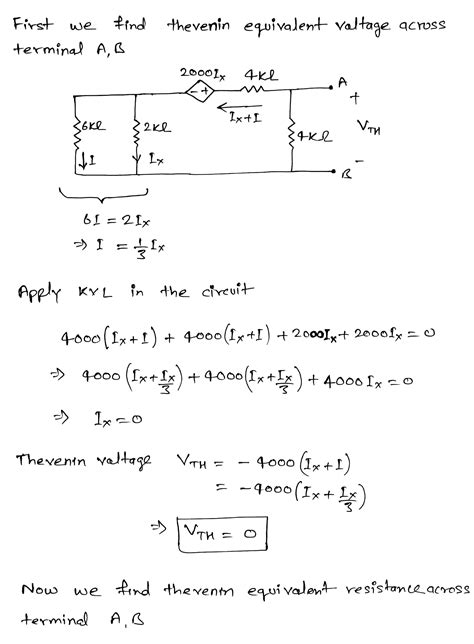 First we find thevenin equivalent voltage across
terminal A,B
2000Ix 4kΩ
A
+
Ix+I
6kΩ 2kΩ 4kΩ VTH
↓I Ix
-
B
6I = 2Ix
⇒ I = 1/3 Ix
Apply KVL in the circuit
4000(Ix+I) + 4000(Ix+I) + 2000Ix + 2000Ix = 0
⇒ 4000(Ix+Ix/3) + 4000(Ix+Ix/3) + 4000Ix = 0
⇒ Ix = 0
Thevenin voltage VTH = - 4000(Ix+I)
= -4000(Ix+Ix/3)
⇒ VTH = 0
Now we find thevenin equivalent resistance across
terminal A,B